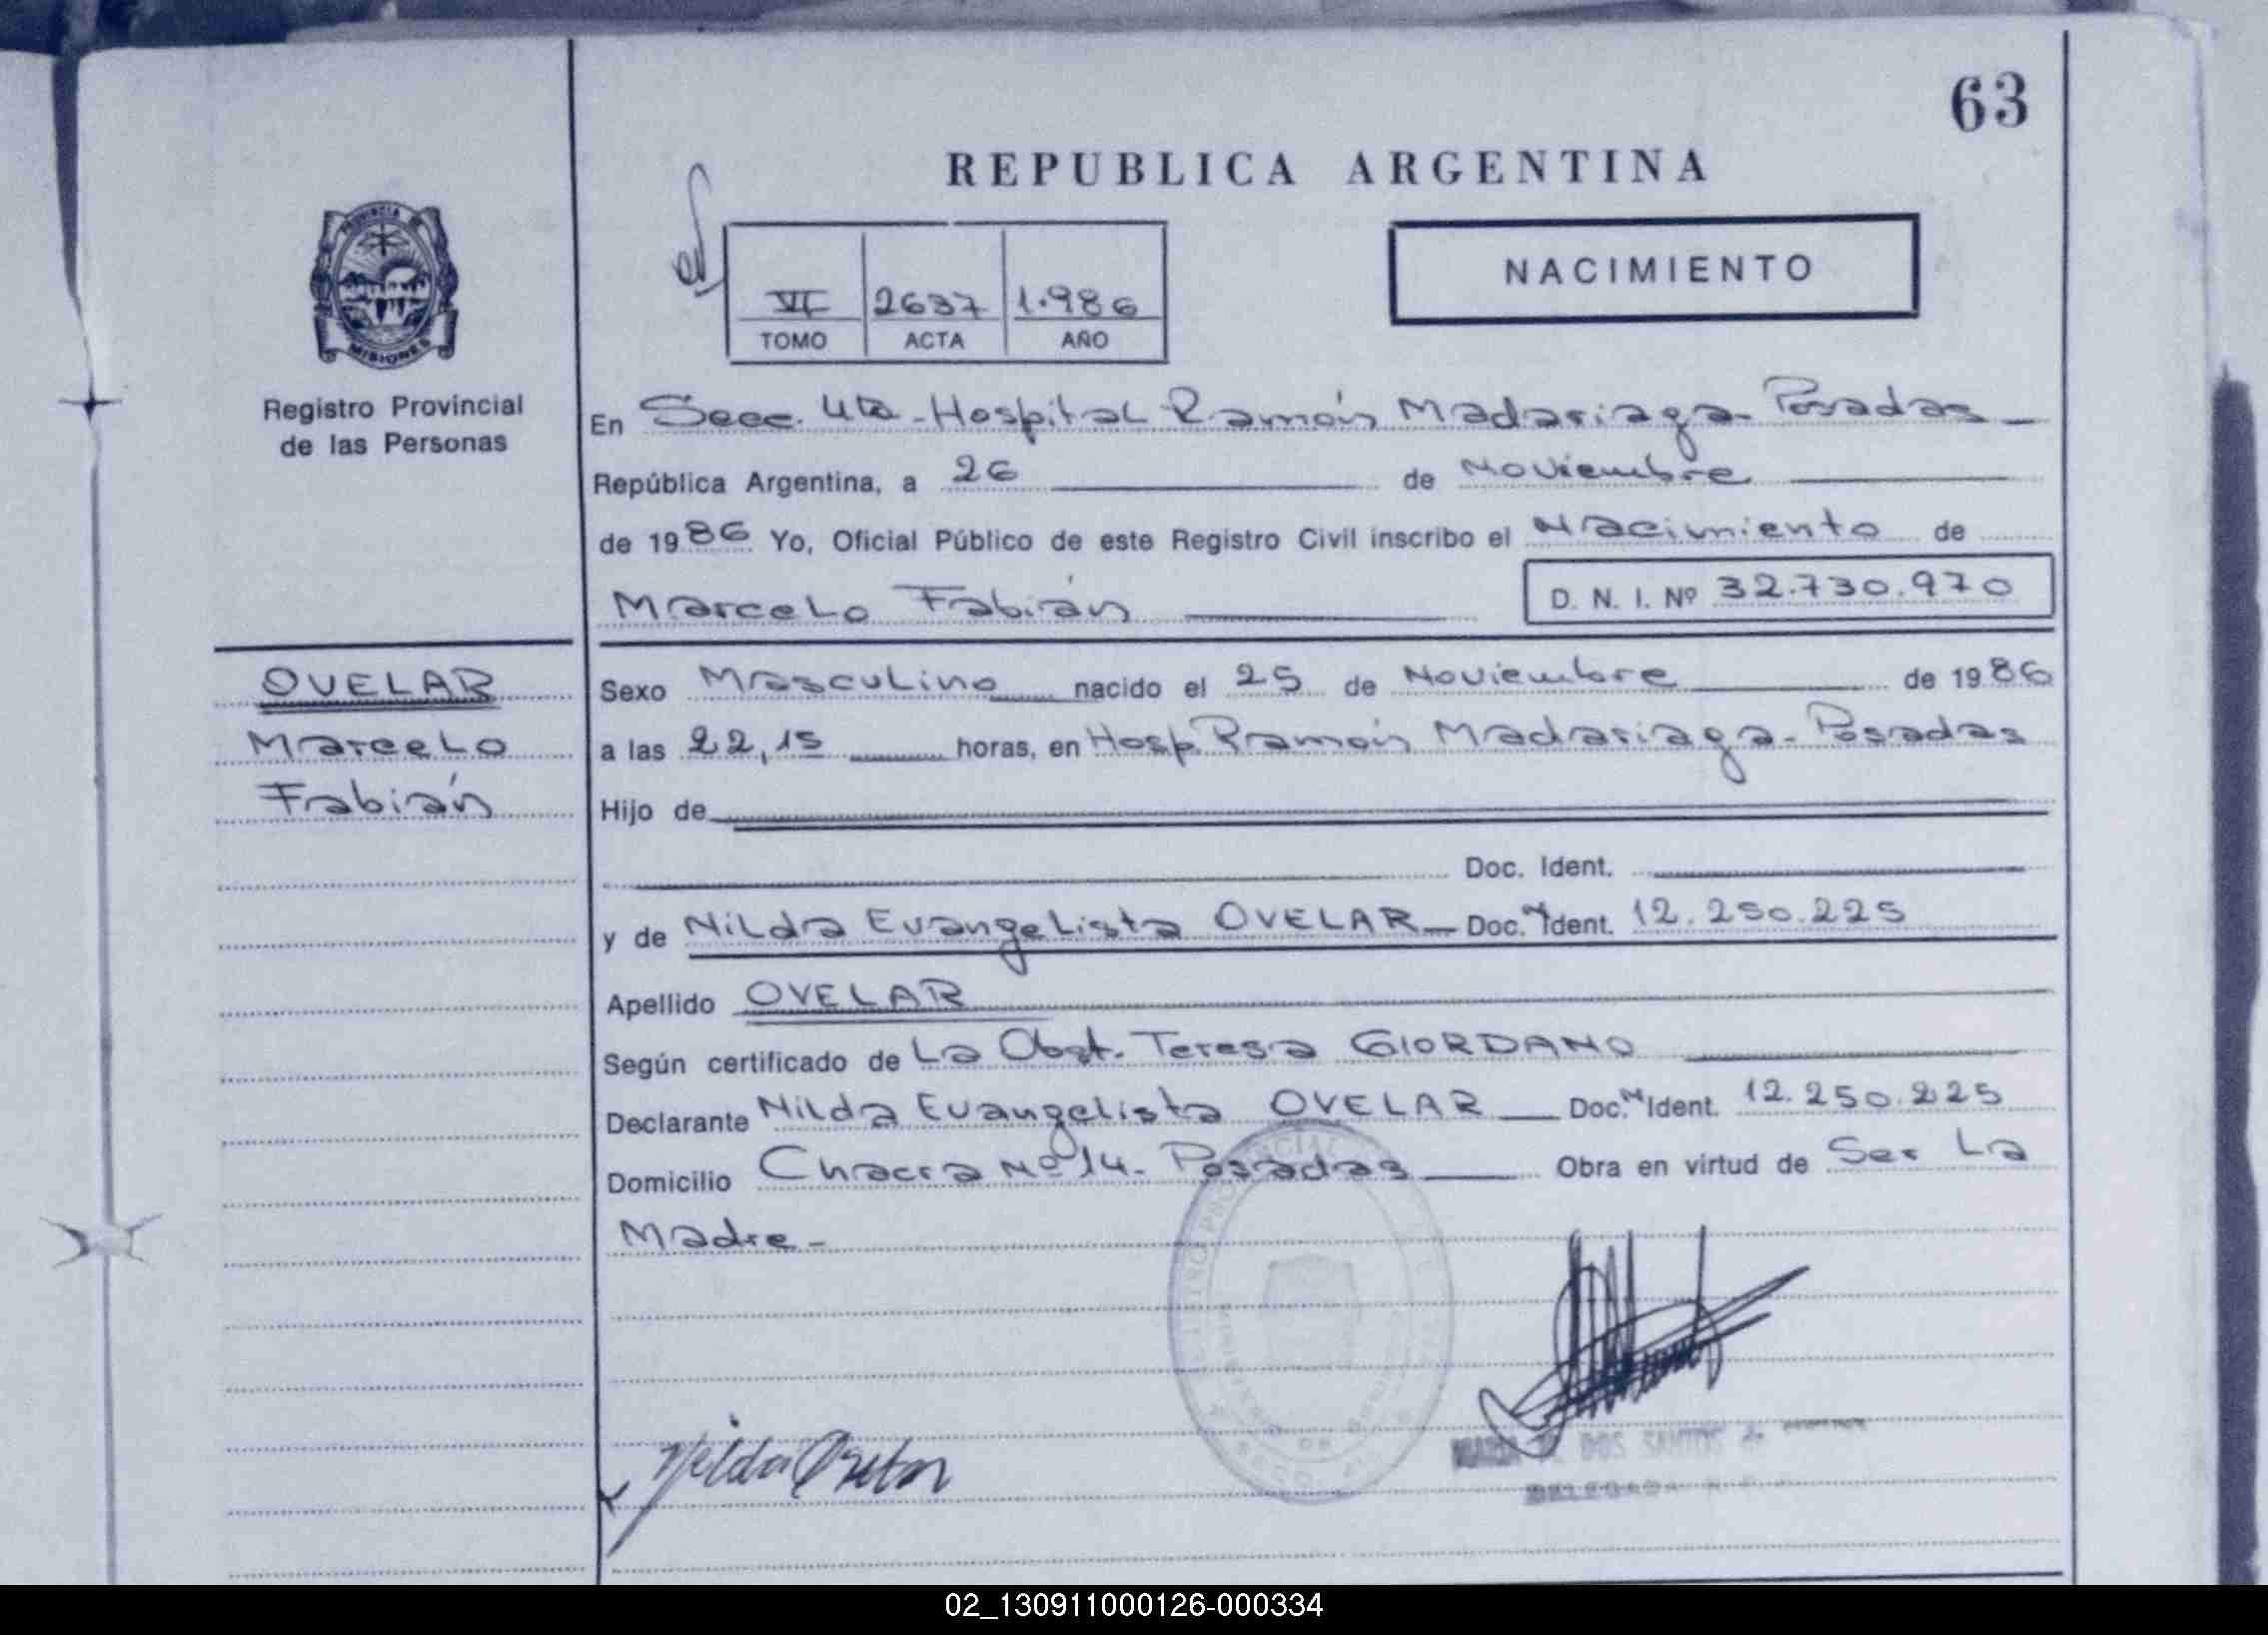 63
REPUBLICA ARGENTINA
PROVINCIA DE
MISIONES
Registro Provincial
de las Personas
VI 2637 1.986
TOMO ACTA AÑO
NACIMIENTO
En Secc. 4ta - Hospital Ramón Madariaga - Posadas -
República Argentina, a 26 de Noviembre
de 1986 Yo, Oficial Público de este Registro Civil inscribo el Nacimiento de
Marcelo Fabián D. N. I. Nº 32.730.970
OVELAR
Marcelo
Fabián
Sexo Masculino nacido el 25 de Noviembre de 1986
a las 22,15 horas, en Hosp. Ramón Madariaga - Posadas
Hijo de
Doc. Ident.
y de Nilda Evangelista OVELAR - Doc. Ident. 12.250.225
Apellido OVELAR
Según certificado de La Obst. Teresa GIORDANO
Declarante Nilda Evangelista OVELAR Doc. Ident. 12.250.225
Domicilio Chacra Nº 14 - Posadas Obra en virtud de Ser La
Madre -
Nilda
DOS SANTOS
DELEGADA
02_130911000126-000334